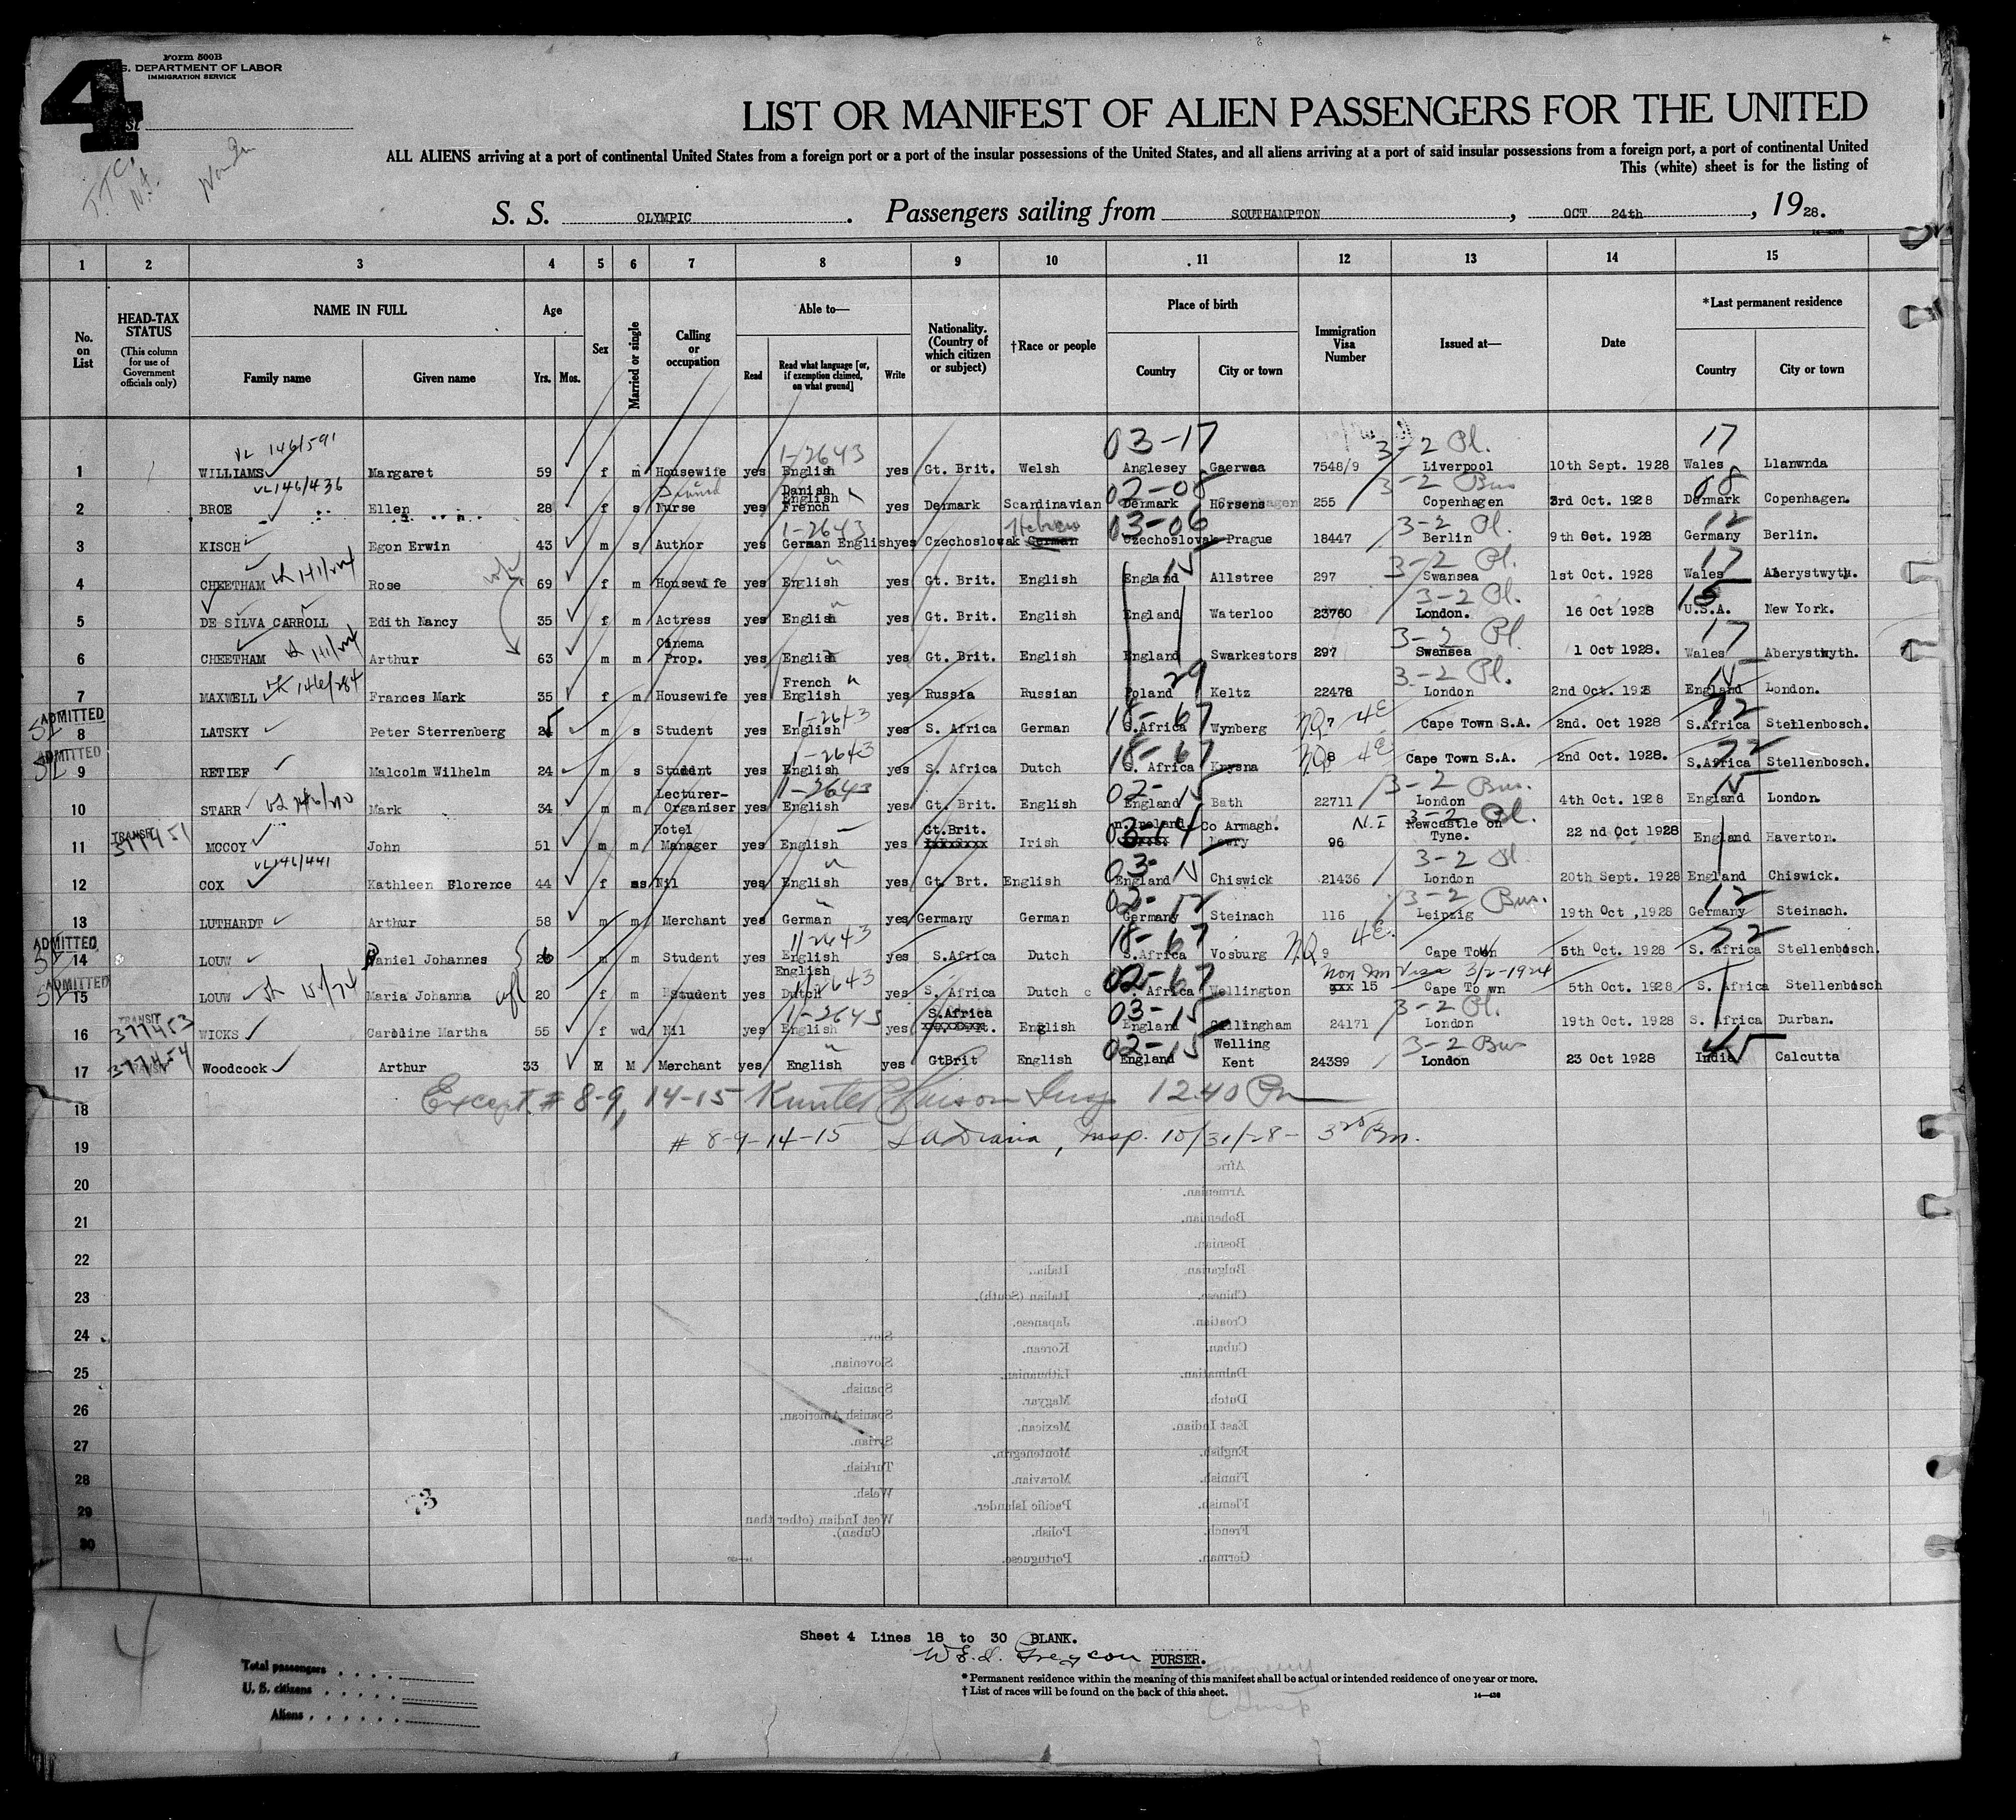 4
Form 500B
U.S. DEPARTMENT OF LABOR
IMMIGRATION SERVICE
LIST OR MANIFEST OF ALIEN PASSENGERS FOR THE UNITED
ALL ALIENS arriving at a port of continental United States from a foreign port or a port of the insular possessions of the United States, and all aliens arriving at a port of said insular possessions from a foreign port, a port of continental United
This (white) sheet is for the listing of
S. S. OLYMPIC. Passengers sailing from SOUTHAMPTON, OCT 24th, 1928.
1 2 3 4 5 6 7 8 9 10 11 12 13 14 15
No. on List
HEAD-TAX STATUS (This column for use of Government officials only)
NAME IN FULL Family name Given name
Age Yrs. Mos.
Sex
Married or single
Calling or occupation
Able to— Read Read what language [or, if exemption claimed, on what ground] Write
Nationality. (Country of which citizen or subject)
†Race or people
Place of birth Country City or town
Immigration Visa Number
Issued at—
Date
*Last permanent residence Country City or town
VL 146/591 1-2643 03-17 3-2 Pl. 17
1 WILLIAMS Margaret 59 f m Housewife yes English yes Gt. Brit. Welsh Anglesey Gaerwaa 7548/9 Liverpool 10th Sept. 1928 Wales Llanwnda
VL 146/436 Danish 02-08 3-2 Bus 08
2 BROE Ellen 28 f s Nurse yes English French yes Denmark Scandinavian Denmark Horsens 255 Copenhagen 3rd Oct. 1928 Denmark Copenhagen.
1-2643 Hebrew 03-06 3-2 Pl. 12
3 KISCH Egon Erwin 43 m s Author yes German English yes Czechoslovak German Czechoslovak Prague 18447 Berlin 9th Oct. 1928 Germany Berlin.
15 3-2 Pl. 17
4 CHEETHAM Rose 69 f m Housewife yes English yes Gt. Brit. English England Allstree 297 Swansea 1st Oct. 1928 Wales Aberystwyth.
3-2 Pl.
5 DE SILVA CARROLL Edith Nancy 35 f m Actress yes English yes Gt. Brit. English England Waterloo 23760 London. 16 Oct 1928 U.S.A. New York.
3-2 Pl. 17
6 CHEETHAM Arthur 63 m m Cinema Prop. yes English yes Gt. Brit. English England Swarkestors 297 Swansea 1 Oct 1928. Wales Aberystwyth.
146/284 29 3-2 Pl. 15
7 MAXWELL Frances Mark 35 f m Housewife yes French English yes Russia Russian Poland Keltz 22478 London 2nd Oct. 1928 England London.
ADMITTED 1-2643 18-67 NQ 4E 72
8 LATSKY Peter Sterrenberg 25 m s Student yes English yes S. Africa German S.Africa Wynberg 7 Cape Town S.A. 2nd. Oct 1928 S.Africa Stellenbosch.
ADMITTED 1-2643 18-67 NQ 4E 72
9 RETIEF Malcolm Wilhelm 24 m s Student yes English yes S. Africa Dutch S. Africa Knysna 8 Cape Town S.A. 2nd Oct. 1928. S.Africa Stellenbosch.
1-2643 02-15 3-2 Bus. 15
10 STARR Mark 34 m m Lecturer-Organiser yes English yes Gt. Brit. English England Bath 22711 London 4th Oct. 1928 England London.
TRANSIT 377451 03-14 N.I 3-2 Pl.
11 MCCOY John 51 m m Hotel Manager yes English yes Gt.Brit. Irish n.Ireland Co Armagh. Lowry 96 Newcastle on Tyne. 22 nd Oct 1928 England Haverton.
VL 146/441 03-15 3-2 Pl.
12 COX Kathleen Florence 44 f s Nil yes English yes Gt. Brt. English England Chiswick 21436 London 20th Sept. 1928 England Chiswick.
02-12 3-2 Bus. 12
13 LUTHARDT Arthur 58 m m Merchant yes German yes Germany German Germany Steinach 116 Leipzig 19th Oct ,1928 Germany Steinach.
ADMITTED 1-2643 18-67 NQ 4E. 72
14 LOUW Daniel Johannes 26 m m Student yes English yes S.Africa Dutch S.Africa Vosburg 9 Cape Town 5th Oct. 1928 S. Africa Stellenbosch.
ADMITTED 1-2643 02-67 Non Im Visa 3/2-1924
15 LOUW Maria Johanna 20 f m Student yes English Dutch yes S. Africa Dutch S. Africa Wellington xxx 15 Cape Town 5th Oct. 1928 S. Africa Stellenbosch
TRANSIT 377453 1-2643 03-15 3-2 Pl.
16 WICKS Caroline Martha 55 f wd Nil yes English yes S.Africa English England Gillingham 24171 London 19th Oct. 1928 S. Africa Durban.
TRANSIT 377454 02-15 3-2 Bus
17 Woodcock Arthur 33 M M Merchant yes English yes GtBrit English England Welling Kent 24389 London 23 Oct 1928 India Calcutta
18 Except # 8-9, 14-15 Insp 12.40 Pm
19 # 8-9-14-15 Insp. 10/31/28- 3 20 Pm.
20
21
22
23
24
25
26
27
28
29
30
73
4
Sheet 4 Lines 18 to 30 BLANK.
PURSER.
Total passengers
U. S. citizens
Aliens
* Permanent residence within the meaning of this manifest shall be actual or intended residence of one year or more.
† List of races will be found on the back of this sheet.
14—430